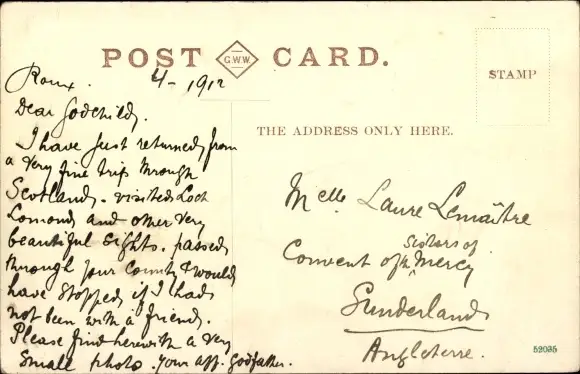 POST G.W.W. CARD.
STAMP
THE ADDRESS ONLY HERE.
Roux. 4 - 1912
Dear Godchild,
I have just returned from
a very fine trip through
Scotland - visited Loch
Lomond and other very
beautiful sights. passed
through your County & would
have stopped if I had
not been with a friend.
Please find herewith a very
small photo. Your aff. Godfather.
Melle Laure Lemaître
Convent of the Sisters of Mercy
Sunderland
Angleterre.
52035